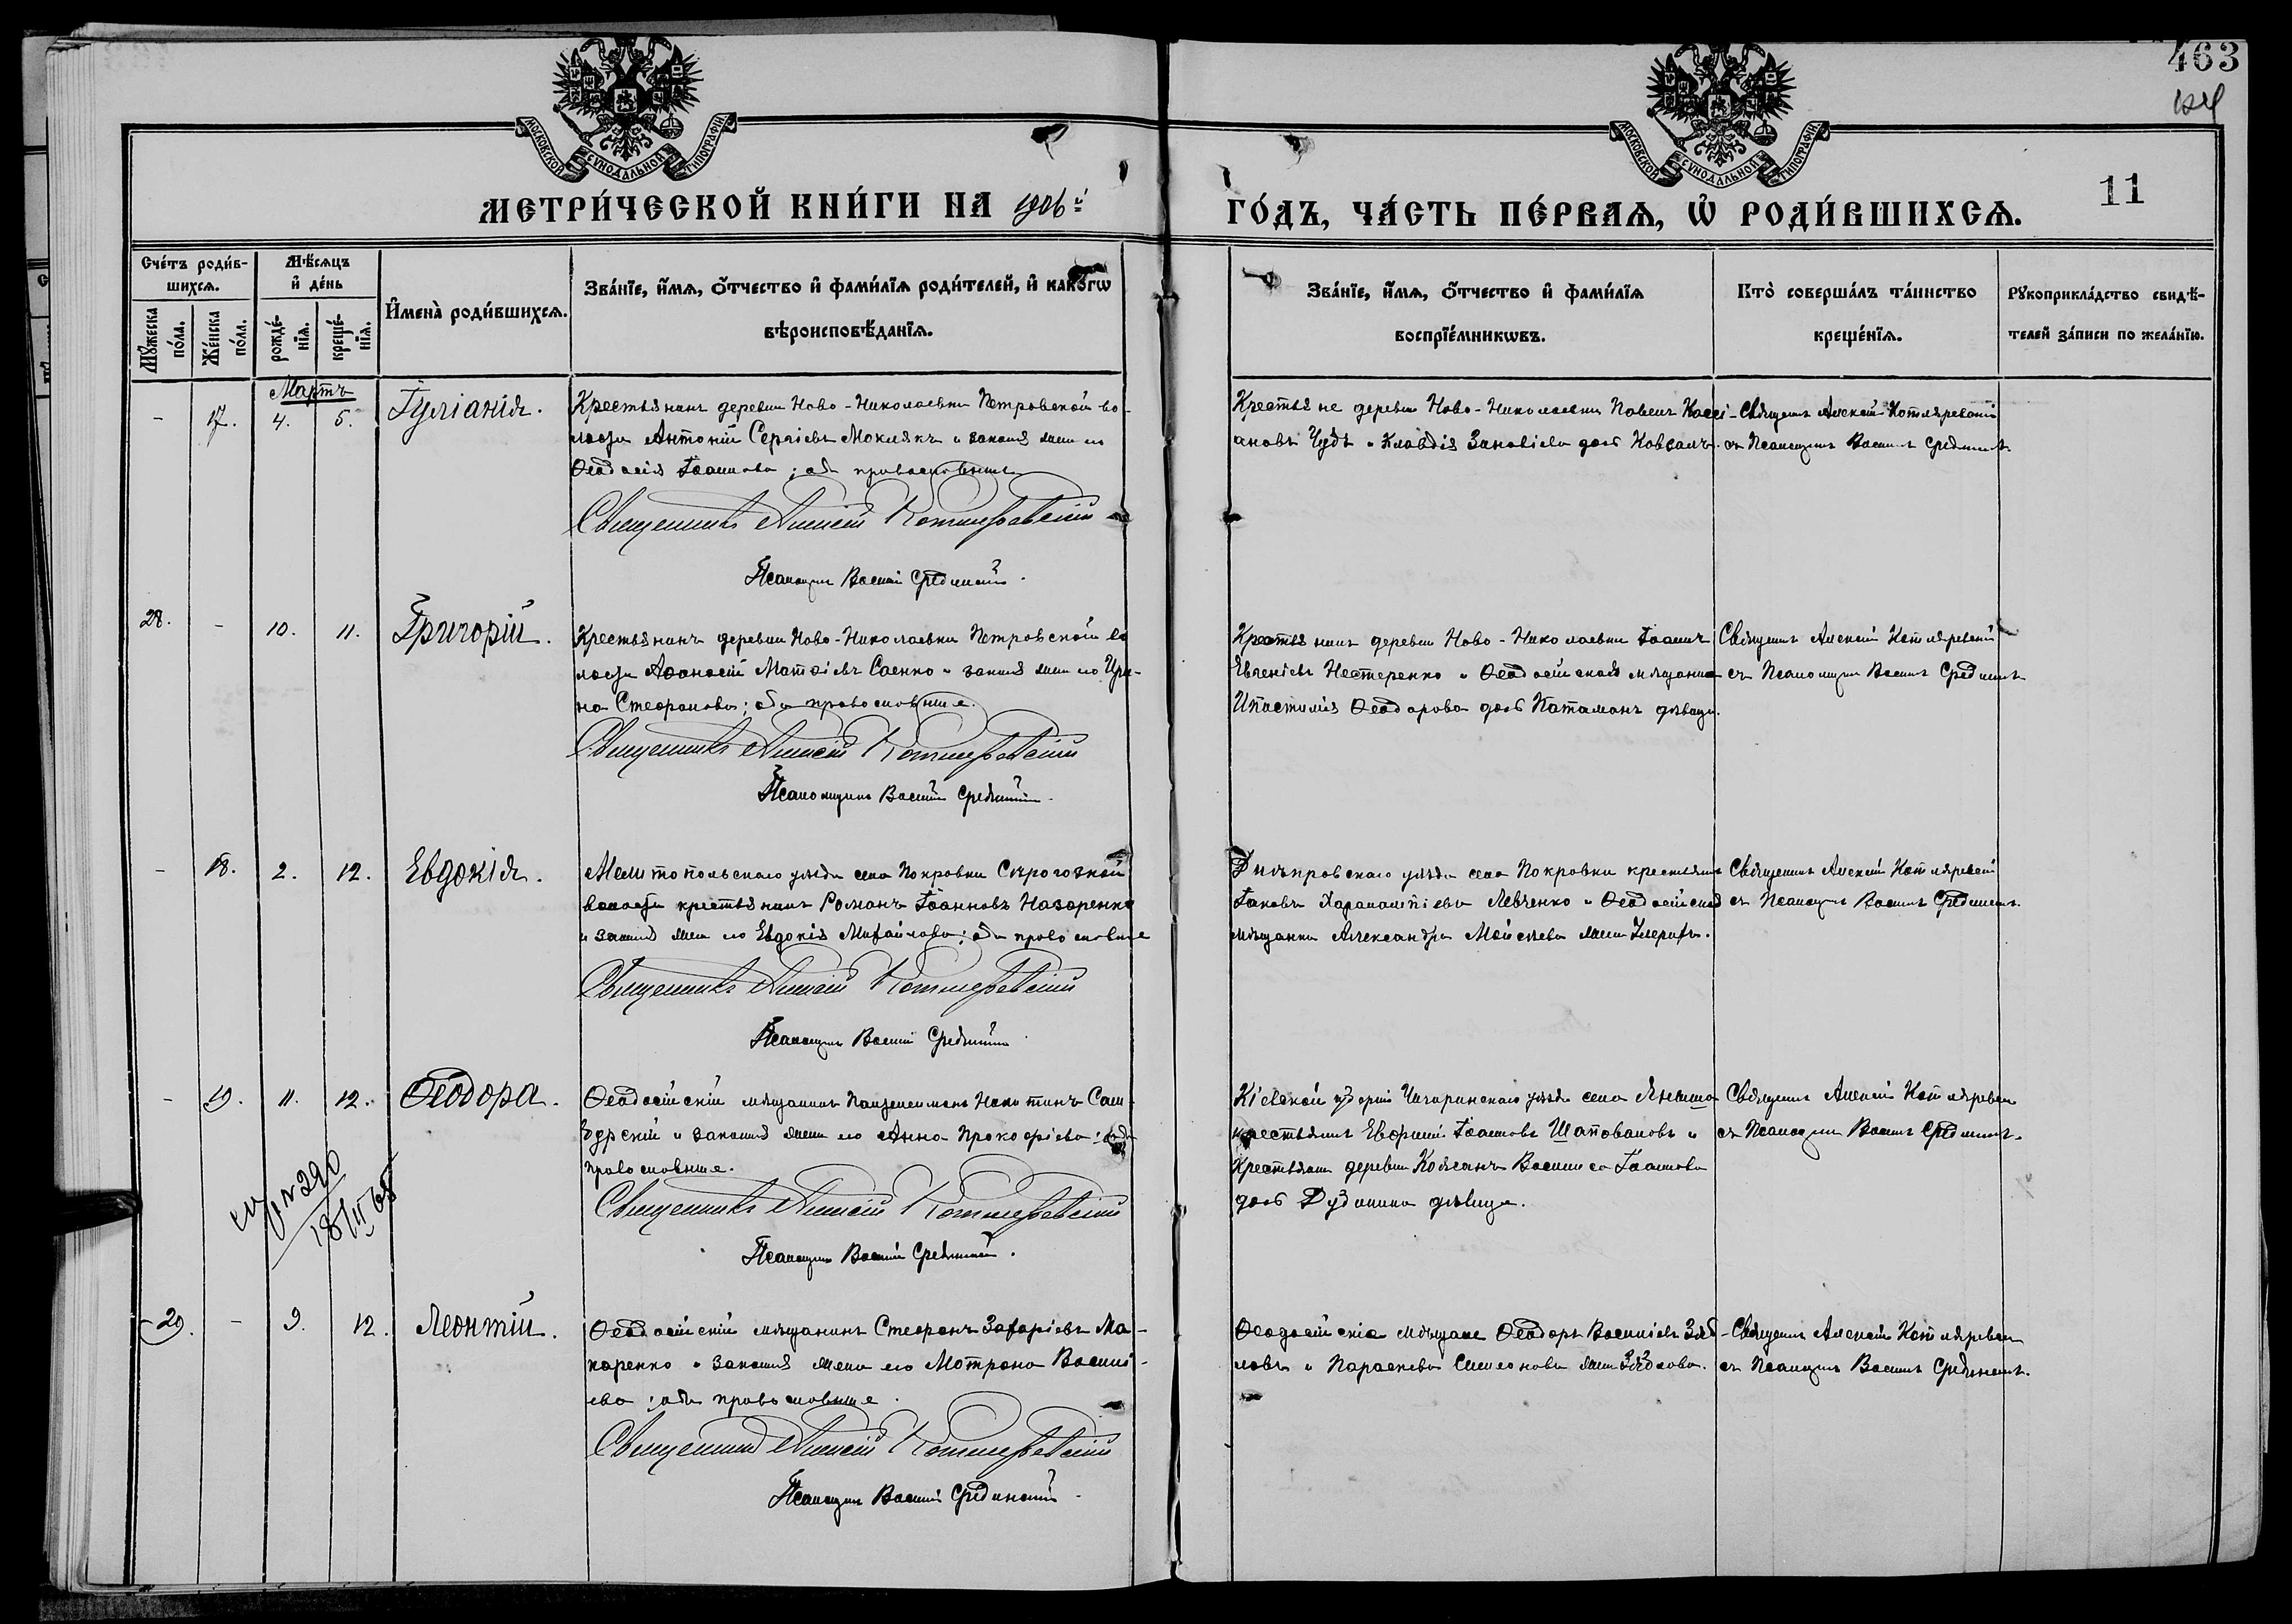 463
МОСКОВСКОЙ СѴНОДАЛЬНОЙ ТИПОГРАФІИ
МОСКОВСКОЙ СѴНОДАЛЬНОЙ ТИПОГРАФІИ
11
МЕТРИ́ЧЕСКОЙ КНИ́ГИ НА 1906й
ГО́ДЪ, ЧА́СТЬ ПЕ́РВАѦ, Ѡ҆ РОДИ́ВШИХСѦ.
Сче́тъ роди́в-
шихсѧ.
Мꙋ́жеска по́ла.
Же́нска по́ла.
Мѣ́сѧцъ
и҆ де́нь
рожде́-нїѧ.
креще́-нїѧ.
И҆мена̀ роди́вшихсѧ.
Зва́нїе, и҆́мѧ, ѻ҆́тчество и҆ фами́лїѧ роди́телей, и҆ како́гѡ
вѣроисповѣ́данїѧ.
Зва́нїе, и҆́мѧ, ѻ҆́тчество и҆ фами́лїѧ
воспрїе́мникѡвъ.
Кто̀ соверша́лъ та́инство
креще́нїѧ.
Рꙋкоприкла́дство свидѣ́-
телей за́писи по жела́нїю.
Мартъ
- 17. 4. 5. Іуліанія.
Крестьянинъ деревни Ново-Николаевки Петровской во-
лости Антоній Сергіевъ Моклякъ и законная жена его
Ѳеодосія Іоаннова; оба православные
Священникъ Алексій Котляревскій
Псаломщикъ Василій Срединскій.
Крестьяне деревни Ново-Николаевки Павелъ Кассі-
ановъ Чубъ и Клавдія Зиновіева дочь Ковалъ.
Священникъ Алексій Котляревскій
съ Псаломщик Василіемъ Срединскимъ
28. - 10. 11. Григорій.
Крестьянинъ деревни Ново-Николаевки Петровской во
лости Аѳанасій Матѳіевъ Саенко и законная жена его Ири-
на Стефанова; оба православные.
Священникъ Алексій Котляревскій
Псаломщикъ Василій Срединскій.
Крестьянинъ деревни Ново-Николаевки Іоаннъ
Евгеніевъ Нестеренко и Ѳеодосійская мѣщанка
Ѳеодорова дочь Патаманъ дѣвица.
Священникъ Алексій Котляревскій
съ Псаломщик Василіемъ Срединскимъ
- 18. 2. 12. Евдокія.
Мелитопольскаго уѣзда села Покровки Сѣрогозской
волости крестьянинъ Романъ Іоанновъ Назаренко
и законная жена его Евдокія Михайлова; оба православные
Священникъ Алексій Котляревскій
Псаломщикъ Василій Срединскій
Днѣпровскаго уѣзда села Покровки крестьянинъ
Іаковъ Харалампіевъ Левченко и Ѳеодосійская
мѣщанка Александра Моисеева жена
Священникъ Алексій Котляревскій
съ Псаломщик Василіемъ Срединскимъ.
- 19. 11. 12. Ѳеодора.
Ѳеодосійскій мѣщанинъ Пантелеимонъ Никитинъ
и законная жена его Анна Прокофіева: оба
православные.
Священникъ Алексій Котляревскій
Псаломщикъ Василій Срединскій.
№ 290
18/II 65
Кіевской губерніи Чигиринскаго уѣзда села
крестьянинъ Евфимій Іоанновъ Шаповаловъ и
крестьянка деревни Коясанъ Василиса Іоаннова
дочь дѣвица.
Священникъ Алексій Котляревскій
съ Псаломщик Василіемъ Срединскимъ.
29. - 9. 12. Леонтій.
Ѳеодосійскій мѣщанинъ Стефанъ Захаріевъ Ма-
каренко и законная жена его Мотрона Василі-
ева; оба православные.
Священникъ Алексій Котляревскій
Псаломщикъ Василій Срединскій.
Ѳеодосійскіе мѣщане Ѳеодоръ Василіевъ Зяб-
ловъ и Параскева Симеонова жена Зяблова.
Священникъ Алексій Котляревскій
съ Псаломщик Василіемъ Срединскимъ.